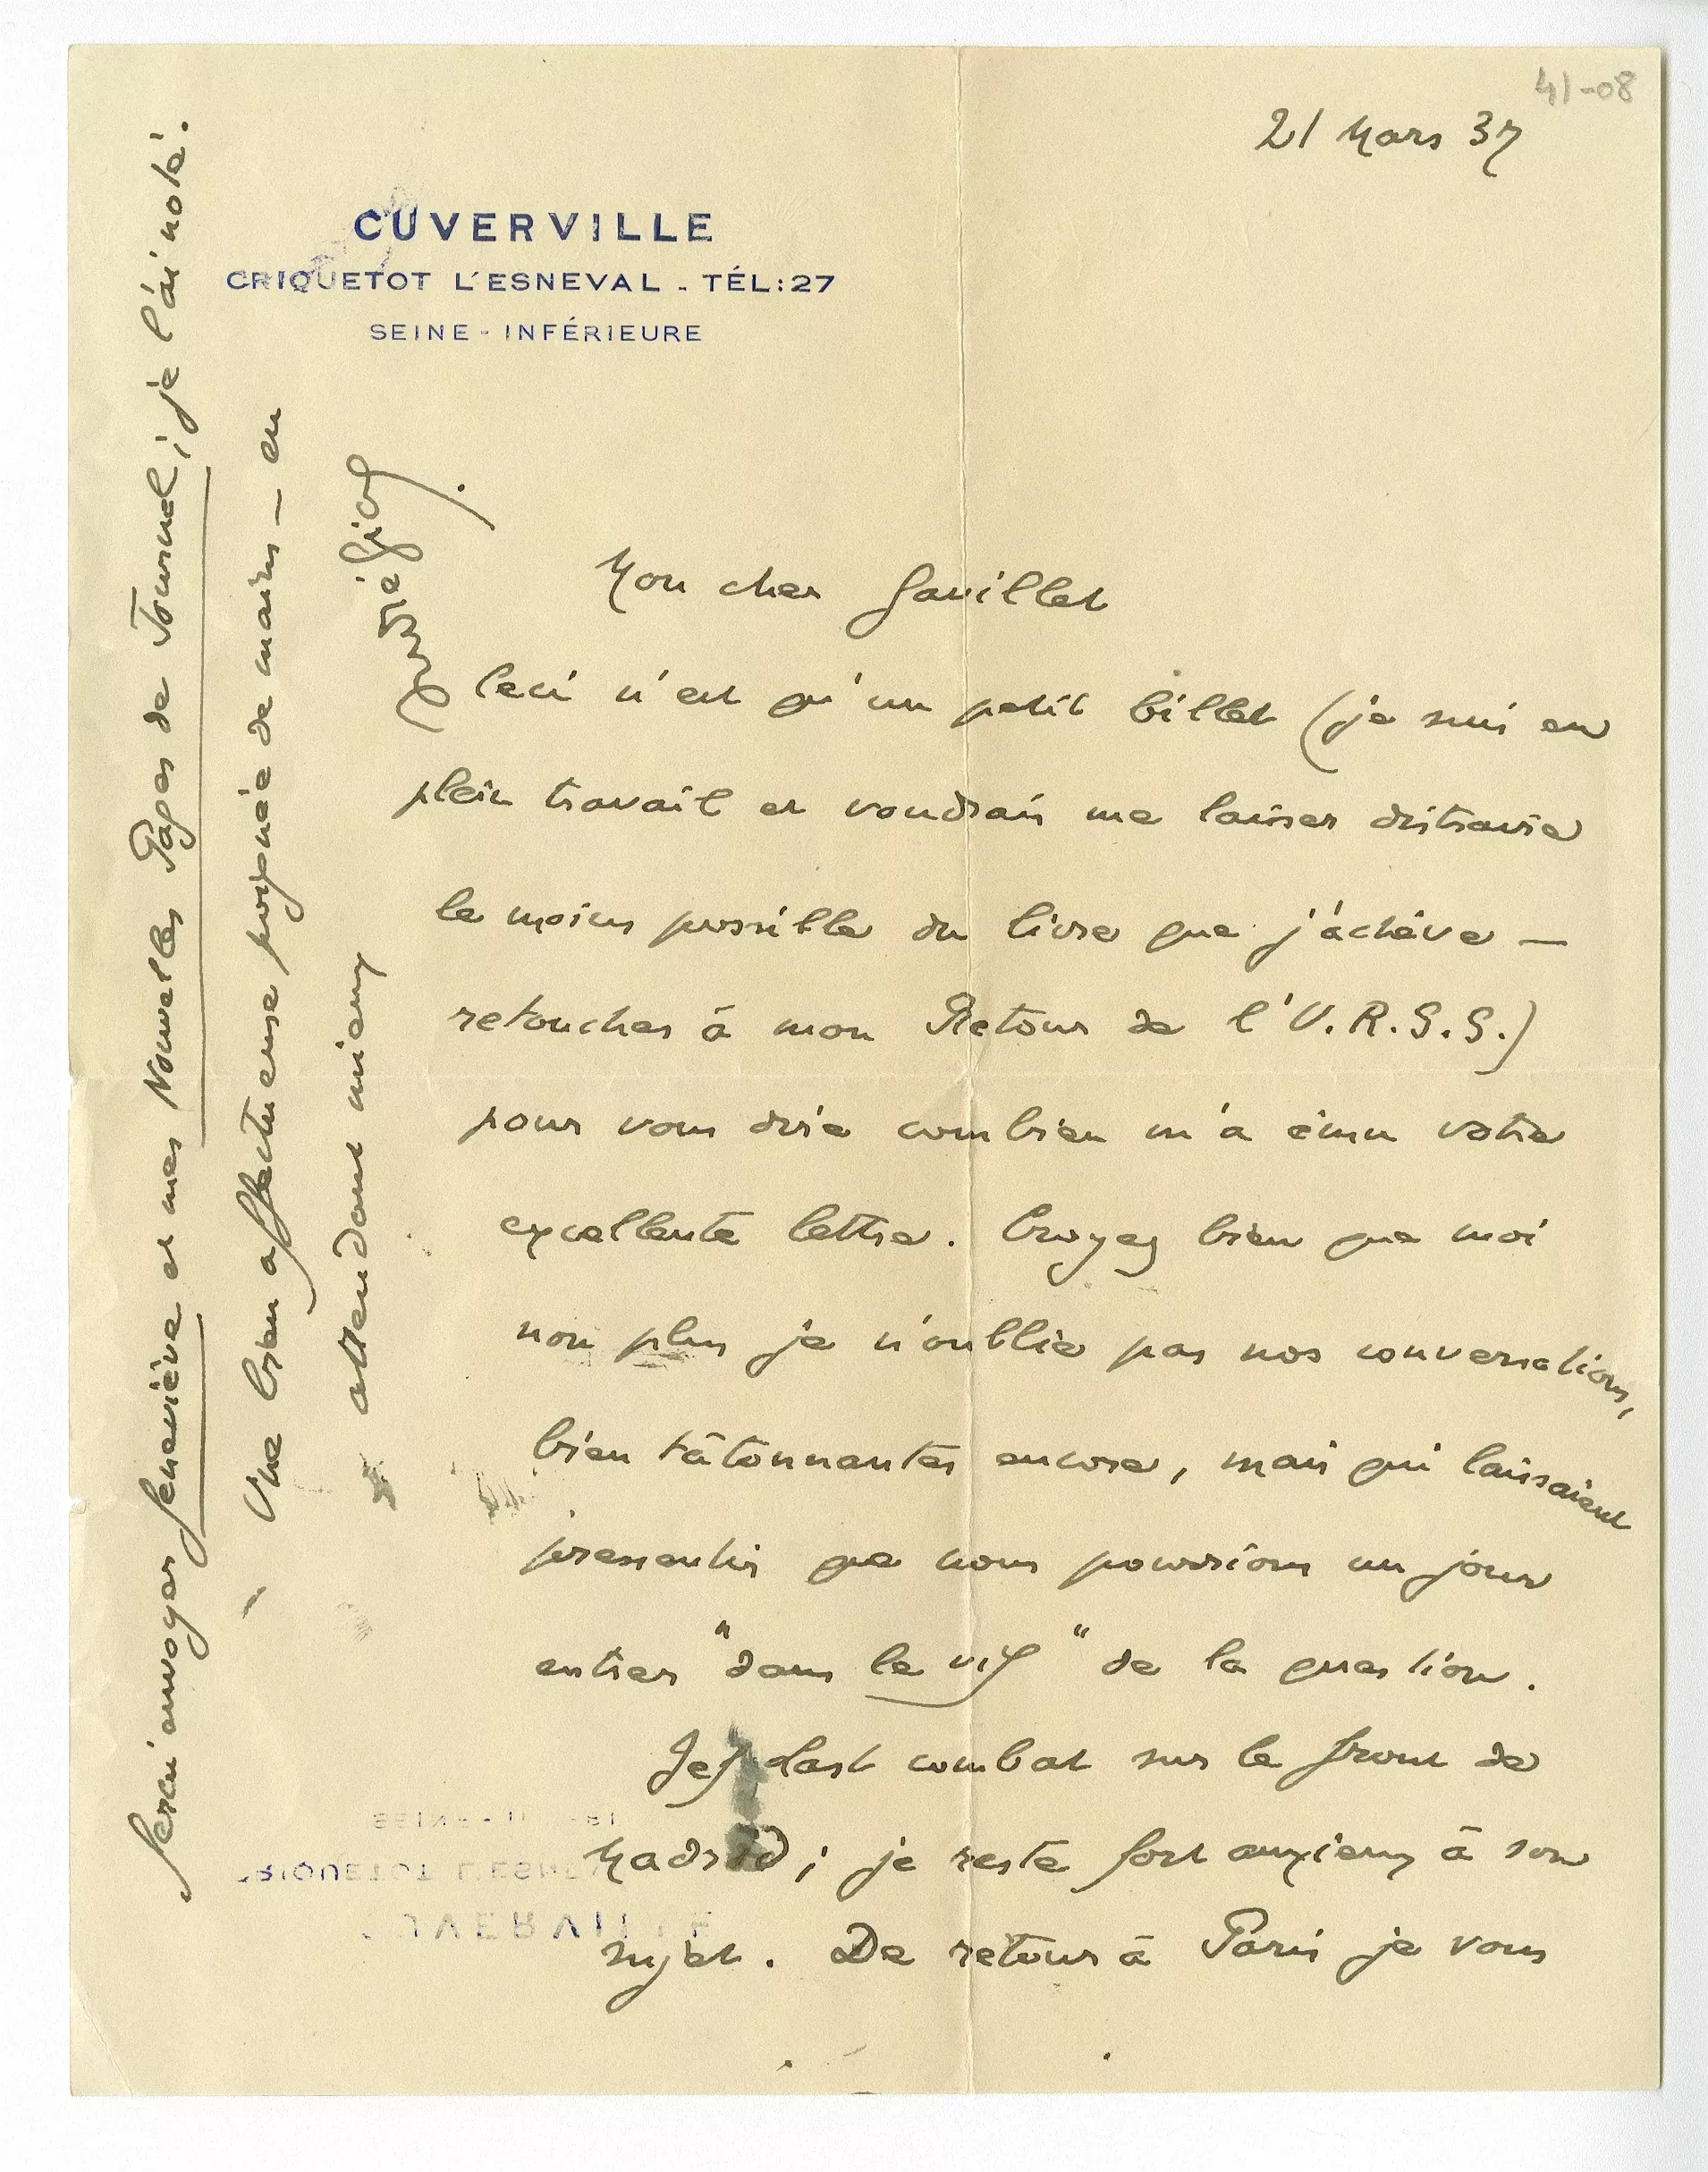 41-08
21 Mars 37
CUVERVILLE
CRIQUETOT L'ESNEVAL - TÉL:27
SEINE-INFÉRIEURE
Mon cher Gavillet
Ceci n'est qu'un petit billet (je suis en
plein travail et voudrais me laisser distraire
le moins possible du livre que j'achève —
retouches à mon Retour de l'U.R.S.S.)
pour vous dire combien m'a ému votre
excellente lettre. Croyez bien que moi
non plus je n'oublie pas nos conversations,
bien tâtonnantes encore, mais qui laissaient
pressentir que nous pourrions un jour
entrer "dans le vif" de la question.
Jef Last combat sur le front de
Madrid ; je reste fort anxieux à son
sujet. De retour à Paris je vous
ferai envoyer Geneviève et mes Nouvelles Pages de Journal ; je l'ai noté.
Une bien affectueuse poignée de mains — en
attendant mieux
André Gide.